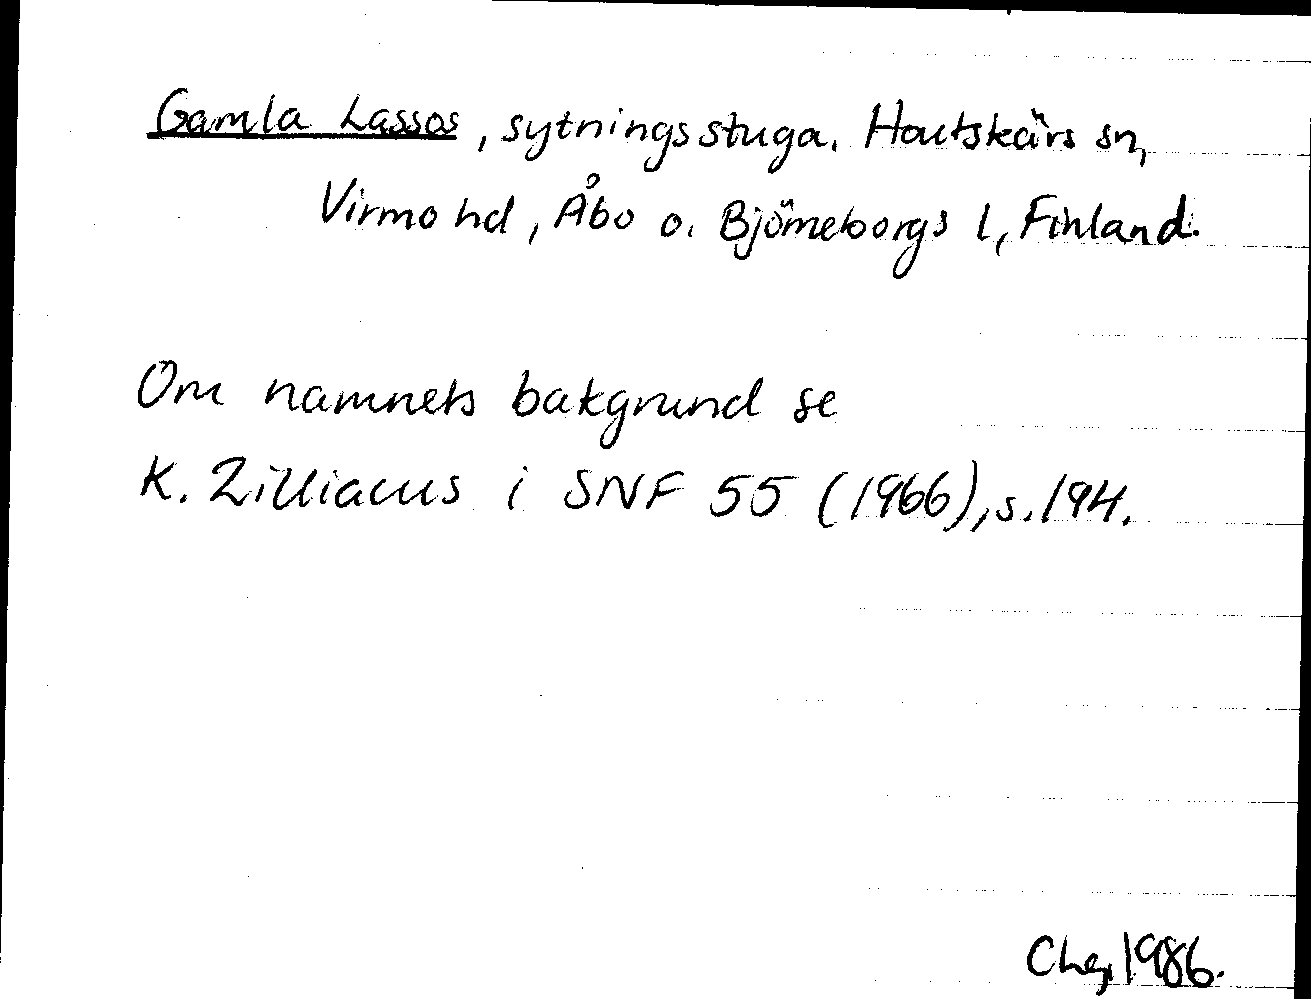 Gamla Lassas, sytningsstuga. Houtskärs sn,
Virmo hd, Åbo o. Björneborgs l, Finland.
Om namnets bakgrund se
K. Zilliacus i SNF 55 (1966), s. 194.
1986.